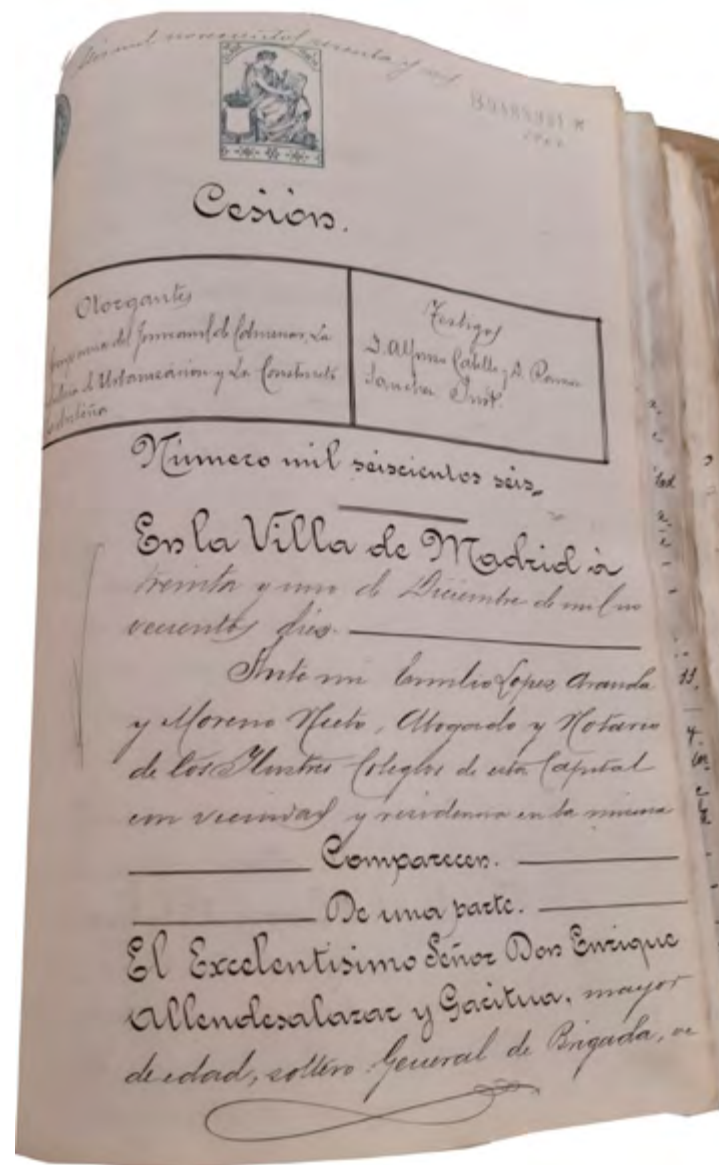 mil novecientos noventa y seis
Cesión.
Otorgantes
del ferrocarril de Colmenar, La
de Urbanización y La Constructo
Madrileña
Testigos
D. Alfonso Cabello y D. Ramon
Sanchez Inst.
Número mil seiscientos seis,
En la Villa de Madrid à
treinta y uno de Diciembre de mil no
vecientos diez.
Ante mi Emilio Lopez Aranda
y Moreno Nieto, Abogado y Notario
de los Ilustres Colegios de esta Capital
con vecindad y residencia en la misma
Comparecen.
De una parte.
El Excelentisimo Señor Don Enrique
Allendesalazar y Gacitua, mayor
de edad, soltero General de Brigada, ve